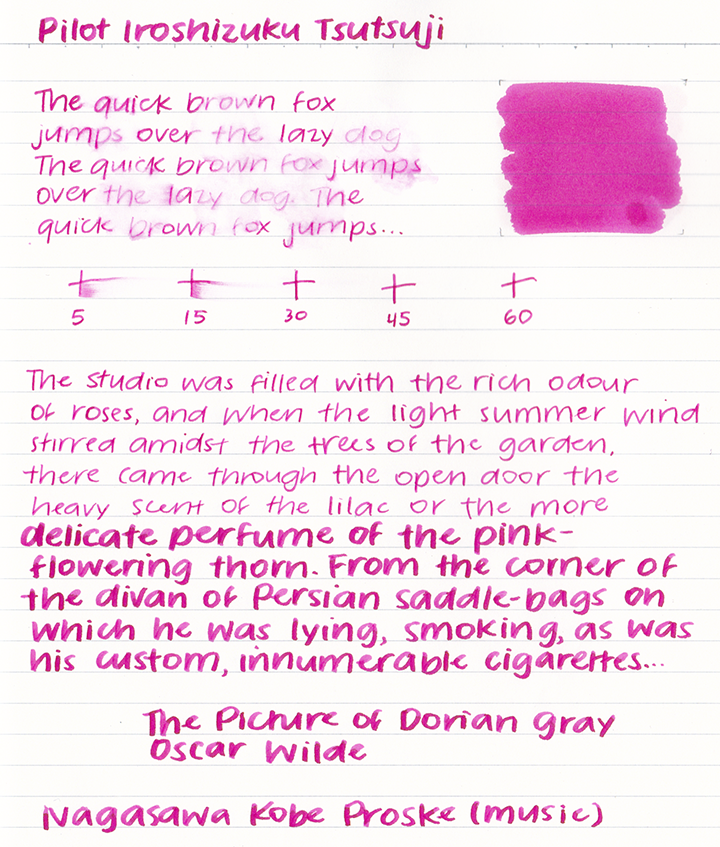 Pilot Iroshizuku Tsutsuji
The quick brown fox
jumps over the lazy dog
The quick brown fox jumps
over the lazy dog. The
quick brown fox jumps...
5 15 30 45 60
The studio was filled with the rich odour
of roses, and when the light summer wind
stirred amidst the trees of the garden,
there came through the open door the
heavy scent of the lilac or the more
delicate perfume of the pink-
flowering thorn. From the corner of
the divan of Persian saddle-bags on
which he was lying, smoking, as was
his custom, innumerable cigarettes...
The Picture of Dorian Gray
Oscar Wilde
Nagasawa Kobe Proske (music)